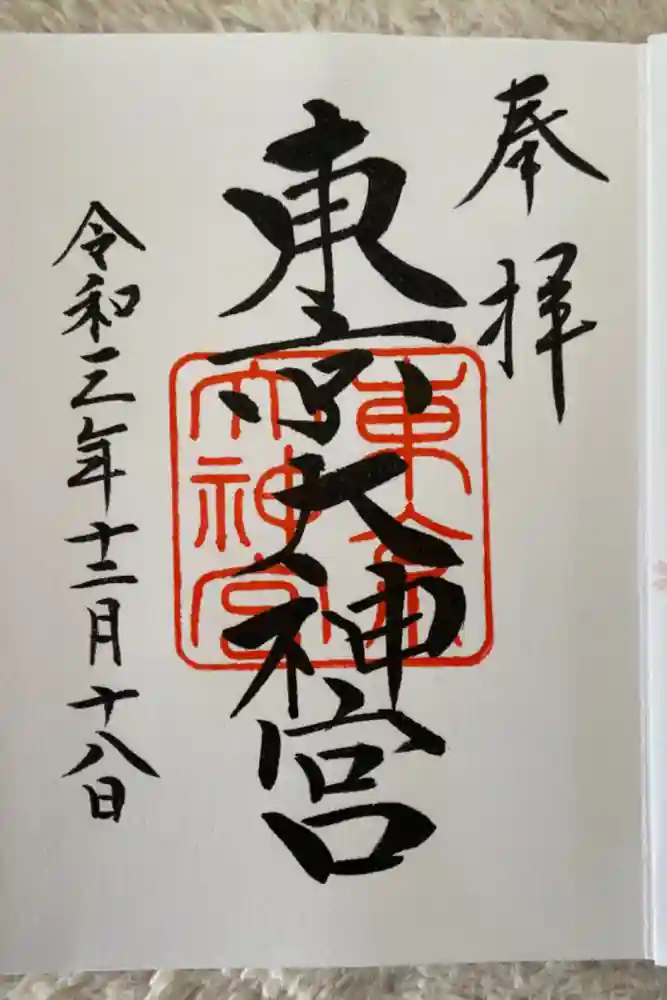 奉拝
東京大神宮
東京大神宮
令和三年十二月十八日